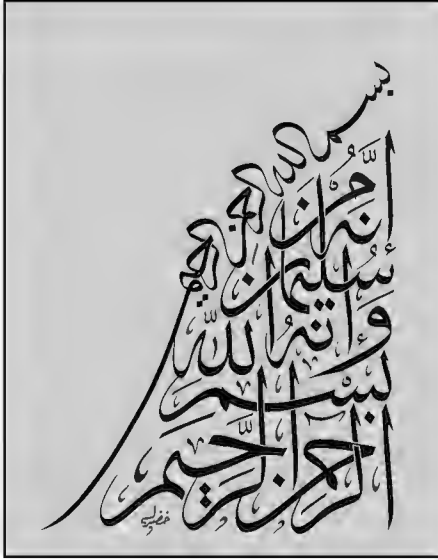 بسم الله الرحمن الرحيم
إنه من
سليمان
وإنه
بسم الله
الرحمن الرحيم